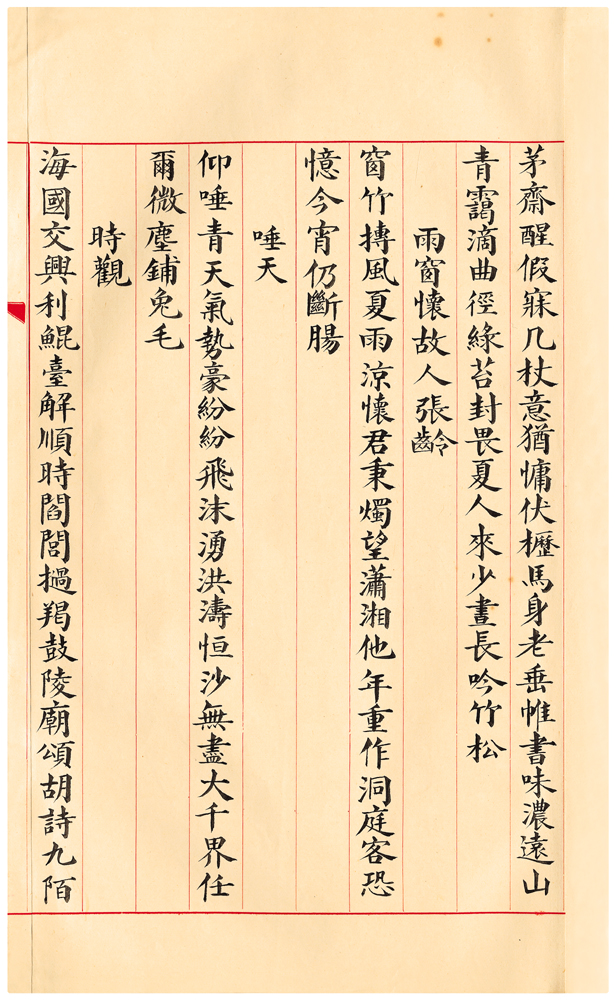 茅齋醒假寐几杖意猶慵伏櫪馬身老垂帷書味濃遠山
青靄滴曲徑綠苔封畏夏人來少晝長吟竹松
雨窗懷故人張齡
窗竹摶風夏雨涼懷君秉燭望瀟湘他年重作洞庭客恐
憶今宵仍斷腸
唾天
仰唾青天氣勢豪紛紛飛沫湧洪濤恒沙無盡大千界任
爾微塵鋪兔毛
時觀
海國交興利鯤臺解順時閻閭撾羯鼓陵廟頌胡詩九陌